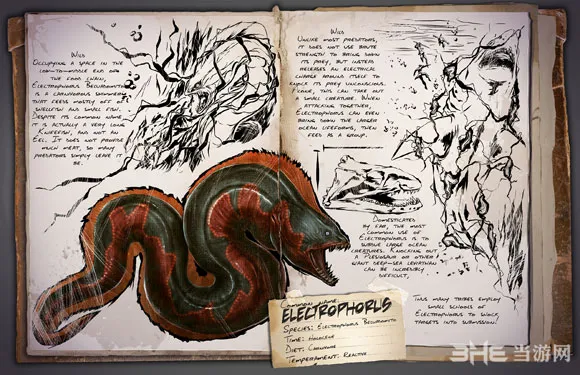 Wild
Occupying a space in the
low-to-middle end of
the food chain,
Electrophorus Beluadomito
is a carnivorous swimmer
that feeds mostly off of
shellfish and small fish.
Despite its common name,
it is actually a very long
Knifefish, and not an
Eel. It does not provide
much meat, so many
predators simply leave it
be.
Wild
Unlike most predators,
it does not use brute
strength to bring down
its prey, but instead
releases an electrical
charge around itself to
knock its prey unconscious.
Alone, this can take out
a small creature. When
attacking together,
Electrophorus can even
bring down the larger
ocean lifeforms, then
feed as a group.
Domesticated
By far, the most
common use of
Electrophorus is to
subdue large ocean
creatures. Knocking out
a Plesiosaur or other
giant deep-sea leviathan
can be incredibly
difficult.
Thus many tribes employ
small schools of
Electrophorus to shock
targets into submission.
Common name
ELECTROPHORUS
Species: Electrophorus Beluadomito
Time: Holocene
Diet: Carnivore
Temperament: Reactive
3HE 当游网